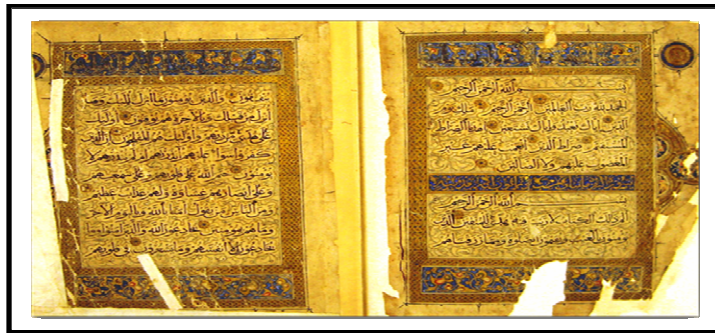 بسم الله الرحمن الرحيم
الحمد لله رب العالمين الرحمن الرحيم ملك يوم
الدين اياك نعبد واياك نستعين اهدنا الصراط
المستقيم صراط الذين انعمت عليهم غير
المغضوب عليهم ولا الضالين
بسم الله الرحمن الرحيم
الم ذلك الكتاب لا ريب فيه هدى للمتقين الذين
يؤمنون بالغيب ويقيمون الصلوة ومما رزقناهم
ينفقون والذين يؤمنون بما انزل اليك وما
انزل من قبلك وبالاخرة هم يوقنون اولئك
على هدى من ربهم واولئك هم المفلحون ان الذين
كفروا سواء عليهم ءانذرتهم ام لم تنذرهم لا
يؤمنون ختم الله على قلوبهم وعلى سمعهم
وعلى ابصارهم غشاوة ولهم عذاب عظيم
ومن الناس من يقول امنا بالله وباليوم الاخر
وما هم بمؤمنين يخادعون الله والذين امنوا وما
يخادعون الا انفسهم وما يشعرون في قلوبهم